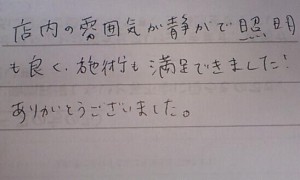 店内の雰囲気が静かで照明
も良く、施術も満足できました!
ありがとうございました。